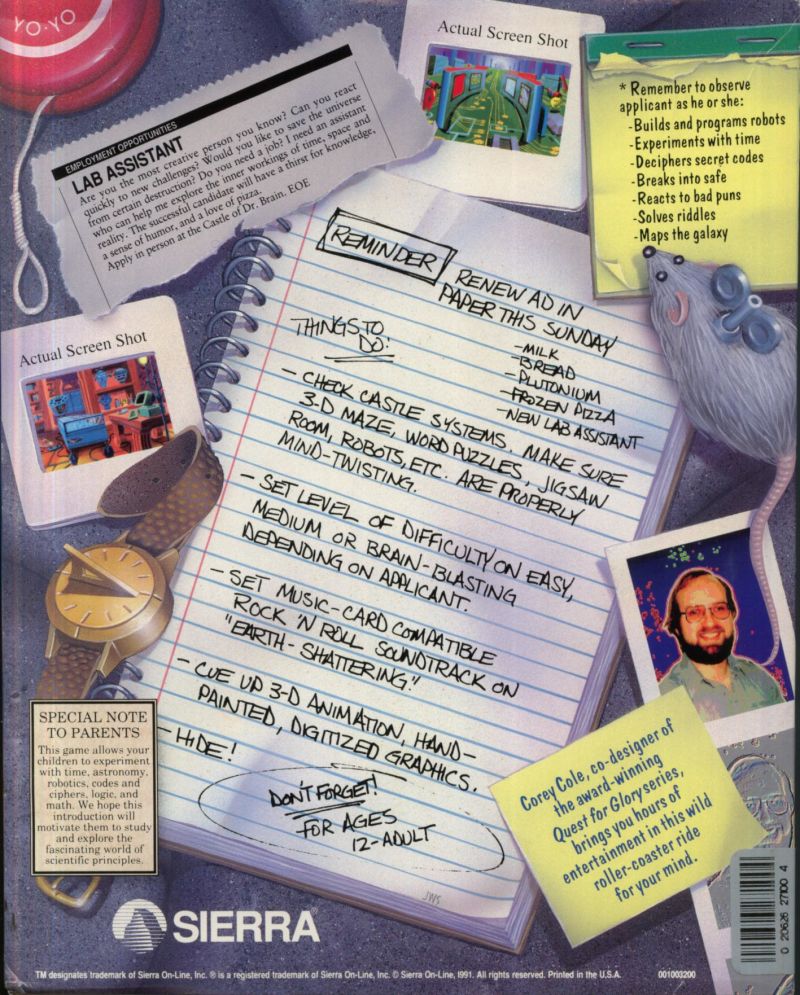 YO-YO
EMPLOYMENT OPPORTUNITIES
LAB ASSISTANT
Are you the most creative person you know? Can you react
quickly to new challenges? Would you like to save the universe
from certain destruction? Do you need a job? I need an assistant
who can help me explore the inner workings of time, space and
reality. The successful candidate will have a thirst for knowledge,
a sense of humor, and a love of pizza.
Apply in person at the Castle of Dr. Brain. EOE
Actual Screen Shot
* Remember to observe
applicant as he or she:
-Builds and programs robots
-Experiments with time
-Deciphers secret codes
-Breaks into safe
-Reacts to bad puns
-Solves riddles
-Maps the galaxy
Actual Screen Shot
REMINDER
RENEW AD IN
PAPER THIS SUNDAY
THINGS TO
DO:
-MILK
-BREAD
-PLUTONIUM
-FROZEN PIZZA
-NEW LAB ASSISTANT
- CHECK CASTLE SYSTEMS. MAKE SURE
3-D MAZE, WORD PUZZLES, JIGSAW
ROOM, ROBOTS, ETC. ARE PROPERLY
MIND-TWISTING.
- SET LEVEL OF DIFFICULTY ON EASY,
MEDIUM OR BRAIN-BLASTING
DEPENDING ON APPLICANT.
- SET MUSIC-CARD COMPATIBLE
ROCK 'N ROLL SOUNDTRACK ON
"EARTH-SHATTERING."
- CUE UP 3-D ANIMATION, HAND-
PAINTED, DIGITIZED GRAPHICS.
-HIDE!
DON'T FORGET!
FOR AGES
12-ADULT
JWS
SPECIAL NOTE
TO PARENTS
This game allows your
children to experiment
with time, astronomy,
robotics, codes and
ciphers, logic, and
math. We hope this
introduction will
motivate them to study
and explore the
fascinating world of
scientific principles.
Corey Cole, co-designer of
the award-winning
Quest for Glory series,
brings you hours of
entertainment in this wild
roller-coaster ride
for your mind.
0 20626 27100 4
SIERRA®
TM designates trademark of Sierra On-Line, Inc. ® is a registered trademark of Sierra On-Line, Inc. © Sierra On-Line, 1991. All rights reserved. Printed in the U.S.A.
001003200